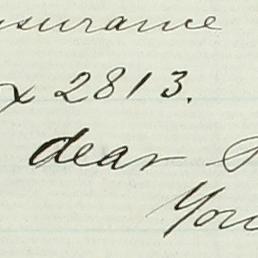 nsurance
x 2813.
dear
You